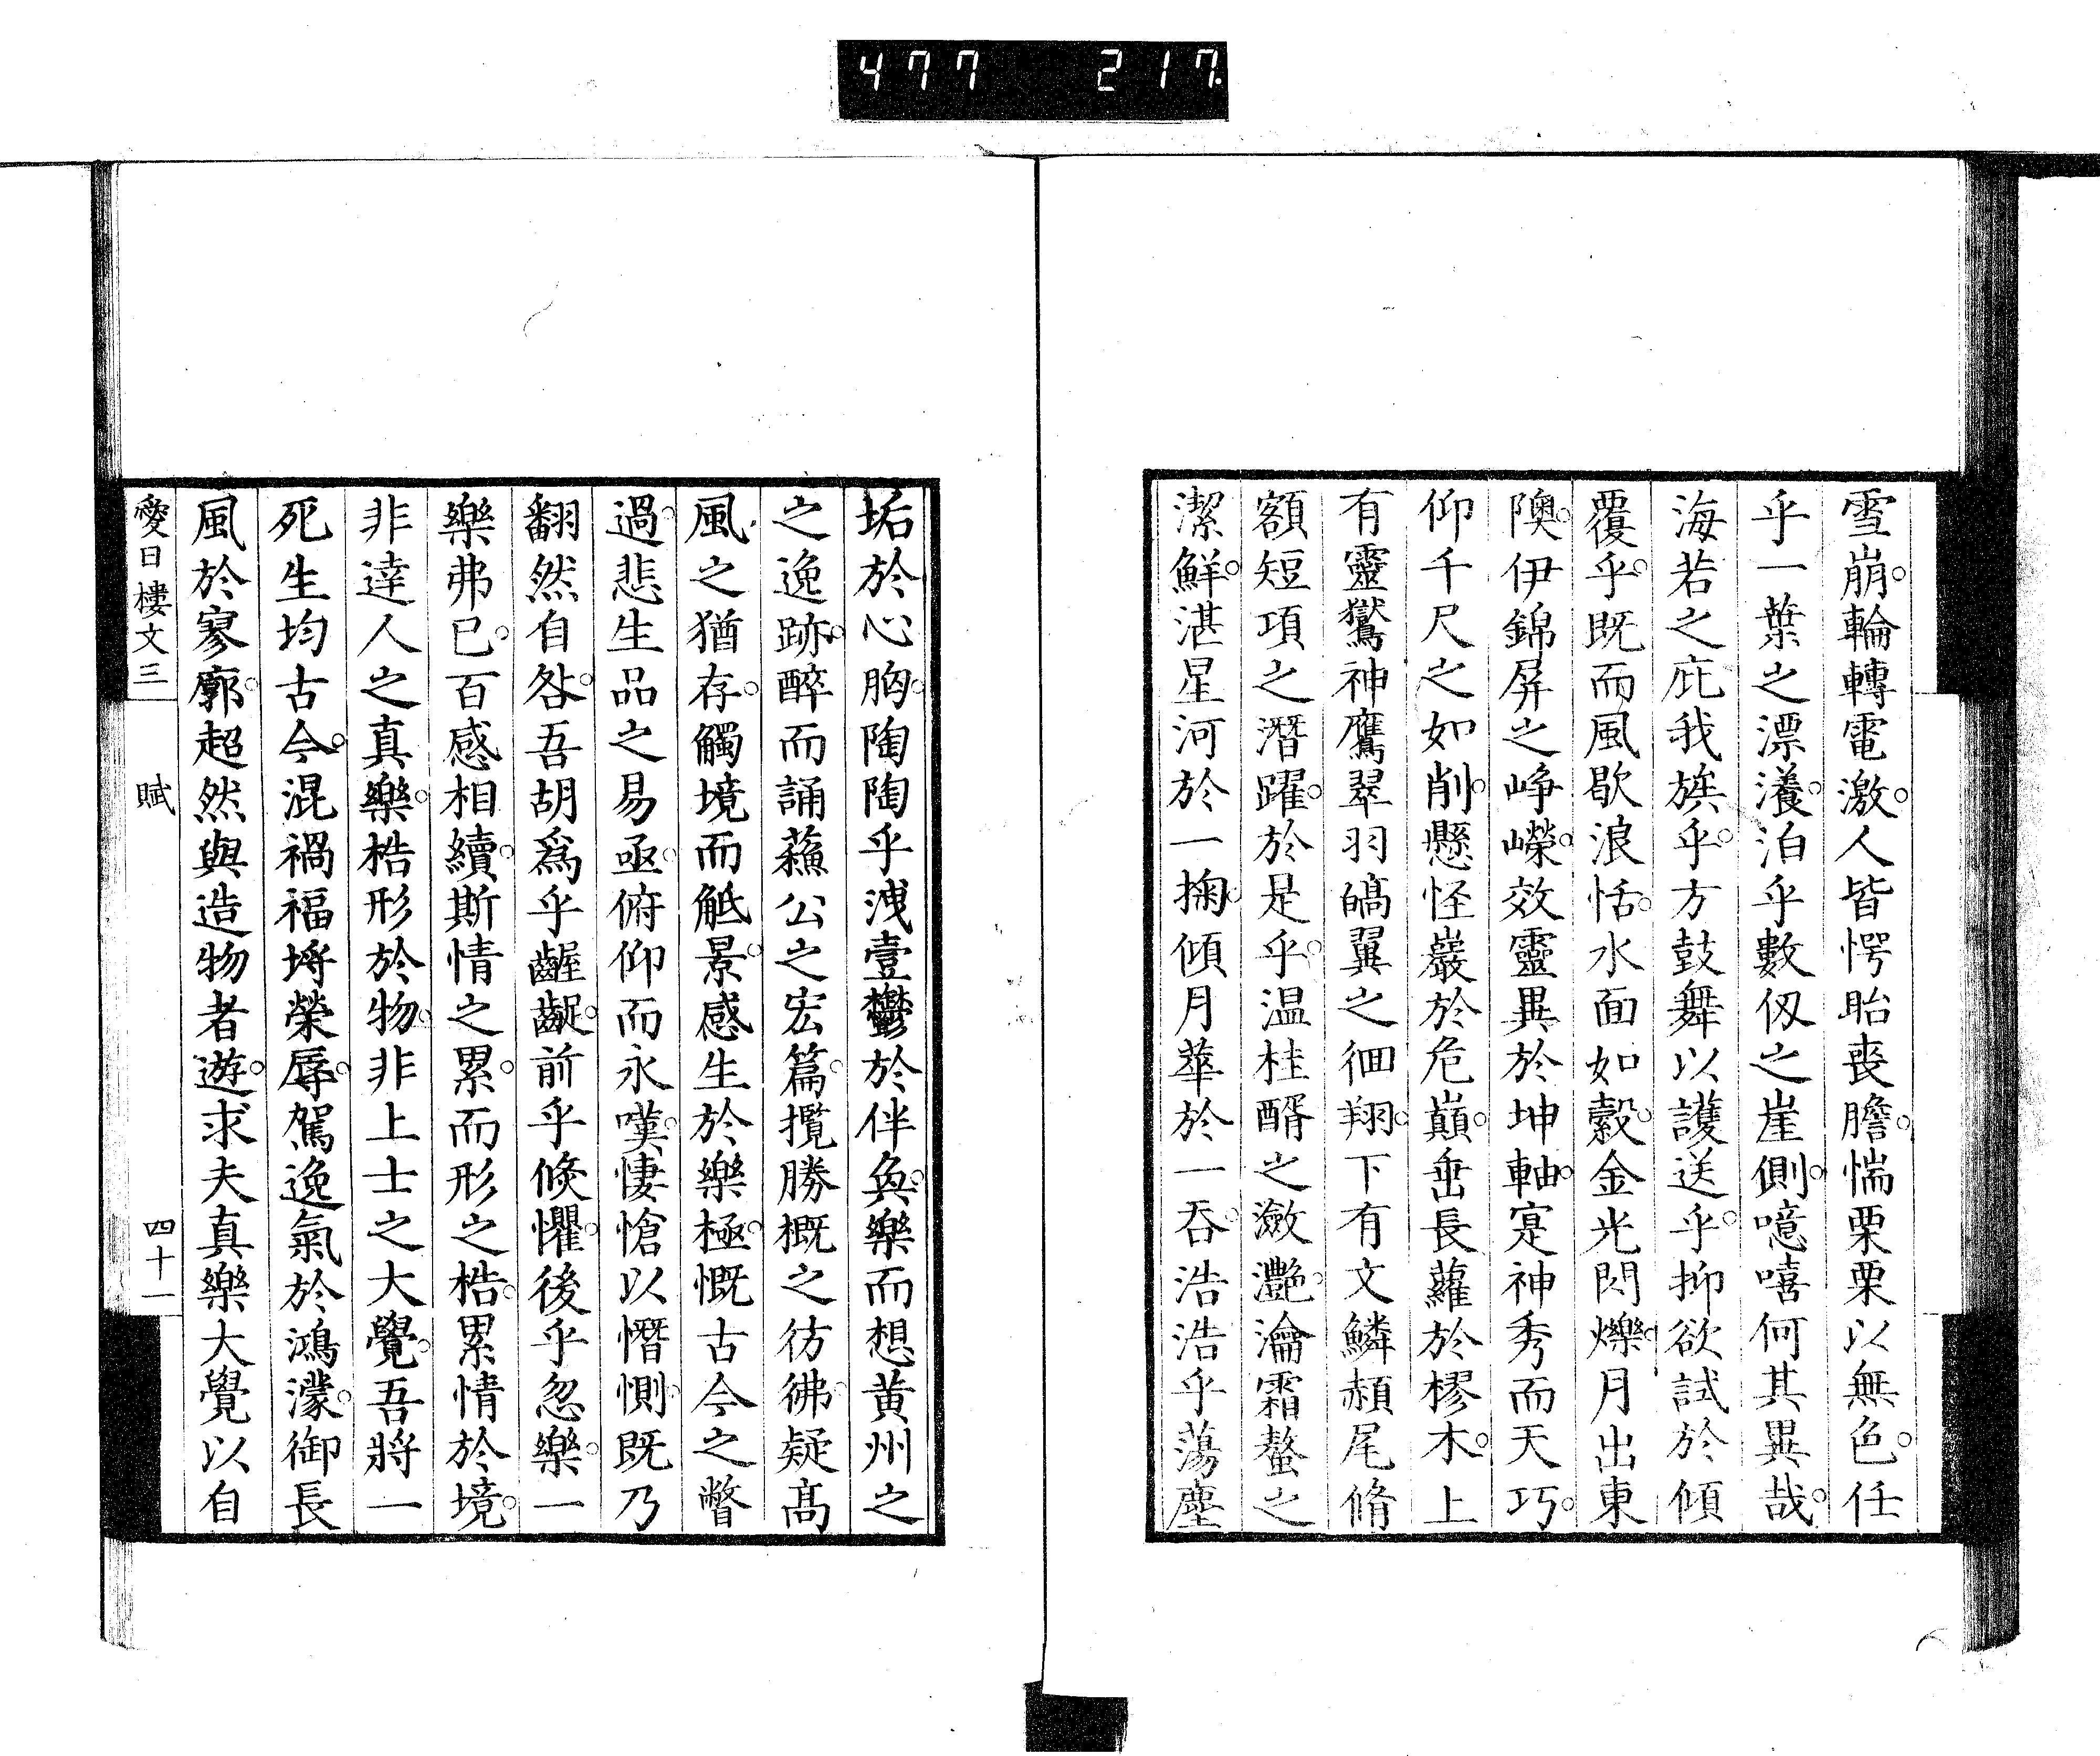 477 217
雪崩。輪轉電激。人皆愕眙喪膽。惴栗栗以無色。任
乎一葉之漂瀁。泊乎數仭之崖側。噫嘻何其異哉。
海若之庇我族乎。方鼓舞以護送乎。抑欲試於傾
覆乎。既而風歇浪恬。水面如縠。金光閃爍。月出東
隩。伊錦屏之崢嶸。效靈異於坤軸。寔神秀而天巧。
仰千尺之如削。懸怪巖於危巓。垂長蘿於樛木。上
有靈鷲神鷹翠羽皜翼之徊翔。下有文鱗赬尾脩
額短項之潛躍。於是乎。温桂醑之瀲灔。瀹霜螯之
潔鮮。湛星河於一掬。傾月華於一吞。浩浩乎蕩塵
垢於心胸。陶陶乎洩壹鬱於伴奐。樂而想黄州之
之逸跡。醉而誦蘓公之宏篇。攬勝概之彷彿。疑髙
風之猶存。觸境而觝景。感生於樂極。慨古今之瞥
過。悲生品之易亟。俯仰而永嘆。悽愴以憯惻。既乃
翻然自咎。吾胡爲乎齷齪。前乎倐懼。後乎忽樂。一
樂弗已。百感相續。斯情之累。而形之梏。累情於境。
非達人之真樂。梏形於物。非上士之大覺。吾將一
死生均古今。混禍福埓榮辱。駕逸氣於鴻濛。御長
風於寥廓。超然與造物者遊。求夫真樂大覺以自
愛日樓文三 賦 四十一